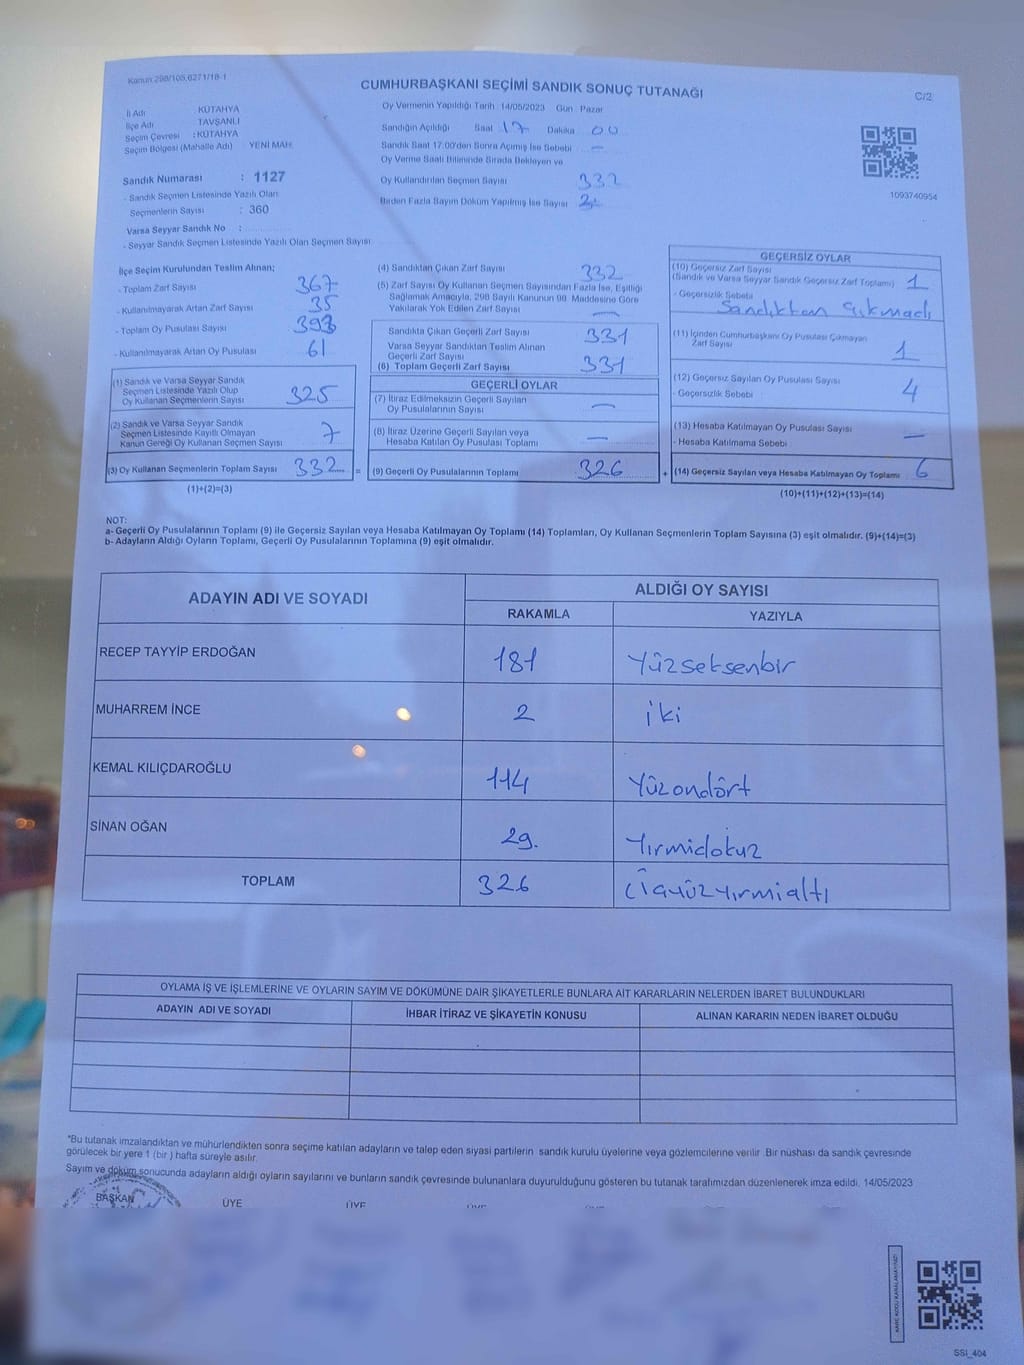 Kanun 298/105,6271/18-1
CUMHURBAŞKANI SEÇİMİ SANDIK SONUÇ TUTANAĞI
C/2
İl Adı : KÜTAHYA
İlçe Adı : TAVŞANLI
Seçim Çevresi : KÜTAHYA
Seçim Bölgesi (Mahalle Adı) YENİ MAH.
Sandık Numarası : 1127
- Sandık Seçmen Listesinde Yazılı Olan
Seçmenlerin Sayısı : 360
Varsa Seyyar Sandık No :
- Seyyar Sandık Seçmen Listesinde Yazılı Olan Seçmen Sayısı
Oy Vermenin Yapıldığı Tarih : 14/05/2023 Gün Pazar
Sandığın Açıldığı Saat 17 Dakika 00
Sandık Saat 17:00'den Sonra Açılmış İse Sebebi —
Oy Verme Saati Bitiminde Sırada Bekleyen ve
Oy Kullandırılan Seçmen Sayısı 332
Birden Fazla Sayım Döküm Yapılmış İse Sayısı 2
1093740954
İlçe Seçim Kurulundan Teslim Alınan;
- Toplam Zarf Sayısı 367
- Kullanılmayarak Artan Zarf Sayısı 35
- Toplam Oy Pusulası Sayısı 393
- Kullanılmayarak Artan Oy Pusulası 61
(1) Sandık ve Varsa Seyyar Sandık
Seçmen Listesinde Yazılı Olup
Oy Kullanan Seçmenlerin Sayısı 325
(2) Sandık ve Varsa Seyyar Sandık
Seçmen Listesinde Kayıtlı Olmayan
Kanun Gereği Oy Kullanan Seçmen Sayısı 7
(3) Oy Kullanan Seçmenlerin Toplam Sayısı 332 =
(1)+(2)=(3)
(4) Sandıktan Çıkan Zarf Sayısı 332
(5) Zarf Sayısı Oy Kullanan Seçmen Sayısından Fazla İse, Eşitliği
Sağlamak Amacıyla, 298 Sayılı Kanunun 98. Maddesine Göre
Yakılarak Yok Edilen Zarf Sayısı —
Sandıkta Çıkan Geçerli Zarf Sayısı 331
Varsa Seyyar Sandıktan Teslim Alınan
Geçerli Zarf Sayısı
(6) Toplam Geçerli Zarf Sayısı 331
GEÇERLİ OYLAR
(7) İtiraz Edilmeksizin Geçerli Sayılan
Oy Pusulalarının Sayısı —
(8) İtiraz Üzerine Geçerli Sayılan veya
Hesaba Katılan Oy Pusulası Toplamı —
(9) Geçerli Oy Pusulalarının Toplamı 326 +
GEÇERSİZ OYLAR
(10) Geçersiz Zarf Sayısı
(Sandık ve Varsa Seyyar Sandık Geçersiz Zarf Toplamı) 1
- Geçersizlik Sebebi
Sandıktan çıkmadı
(11) İçinden Cumhurbaşkanı Oy Pusulası Çıkmayan
Zarf Sayısı 1
(12) Geçersiz Sayılan Oy Pusulası Sayısı 4
- Geçersizlik Sebebi
(13) Hesaba Katılmayan Oy Pusulası Sayısı —
- Hesaba Katılmama Sebebi
(14) Geçersiz Sayılan veya Hesaba Katılmayan Oy Toplamı 6
(10)+(11)+(12)+(13)=(14)
NOT:
a- Geçerli Oy Pusulalarının Toplamı (9) ile Geçersiz Sayılan veya Hesaba Katılmayan Oy Toplamı (14) Toplamları, Oy Kullanan Seçmenlerin Toplam Sayısına (3) eşit olmalıdır. (9)+(14)=(3)
b- Adayların Aldığı Oyların Toplamı, Geçerli Oy Pusulalarının Toplamına (9) eşit olmalıdır.
ADAYIN ADI VE SOYADI
ALDIĞI OY SAYISI
RAKAMLA YAZIYLA
RECEP TAYYİP ERDOĞAN 181 Yüzseksenbir
MUHARREM İNCE 2 iki
KEMAL KILIÇDAROĞLU 114 Yüzondört
SİNAN OĞAN 29. Yirmidokuz
TOPLAM 326 üçyüzyirmialtı
OYLAMA İŞ VE İŞLEMLERİNE VE OYLARIN SAYIM VE DÖKÜMÜNE DAİR ŞİKAYETLERLE BUNLARA AİT KARARLARIN NELERDEN İBARET BULUNDUKLARI
ADAYIN ADI VE SOYADI İHBAR İTİRAZ VE ŞİKAYETİN KONUSU ALINAN KARARIN NEDEN İBARET OLDUĞU
*Bu tutanak imzalandıktan ve mühürlendikten sonra seçime katılan adayların ve talep eden siyasi partilerin sandık kurulu üyelerine veya gözlemcilerine verilir. Bir nüshası da sandık çevresinde
görülecek bir yere 1 (bir) hafta süreyle asılır.
Sayım ve döküm sonucunda adayların aldığı oyların sayılarını ve bunların sandık çevresinde bulunanlara duyurulduğunu gösteren bu tutanak tarafımızdan düzenlenerek imza edildi. 14/05/2023
BAŞKAN ÜYE ÜYE
SSI_404